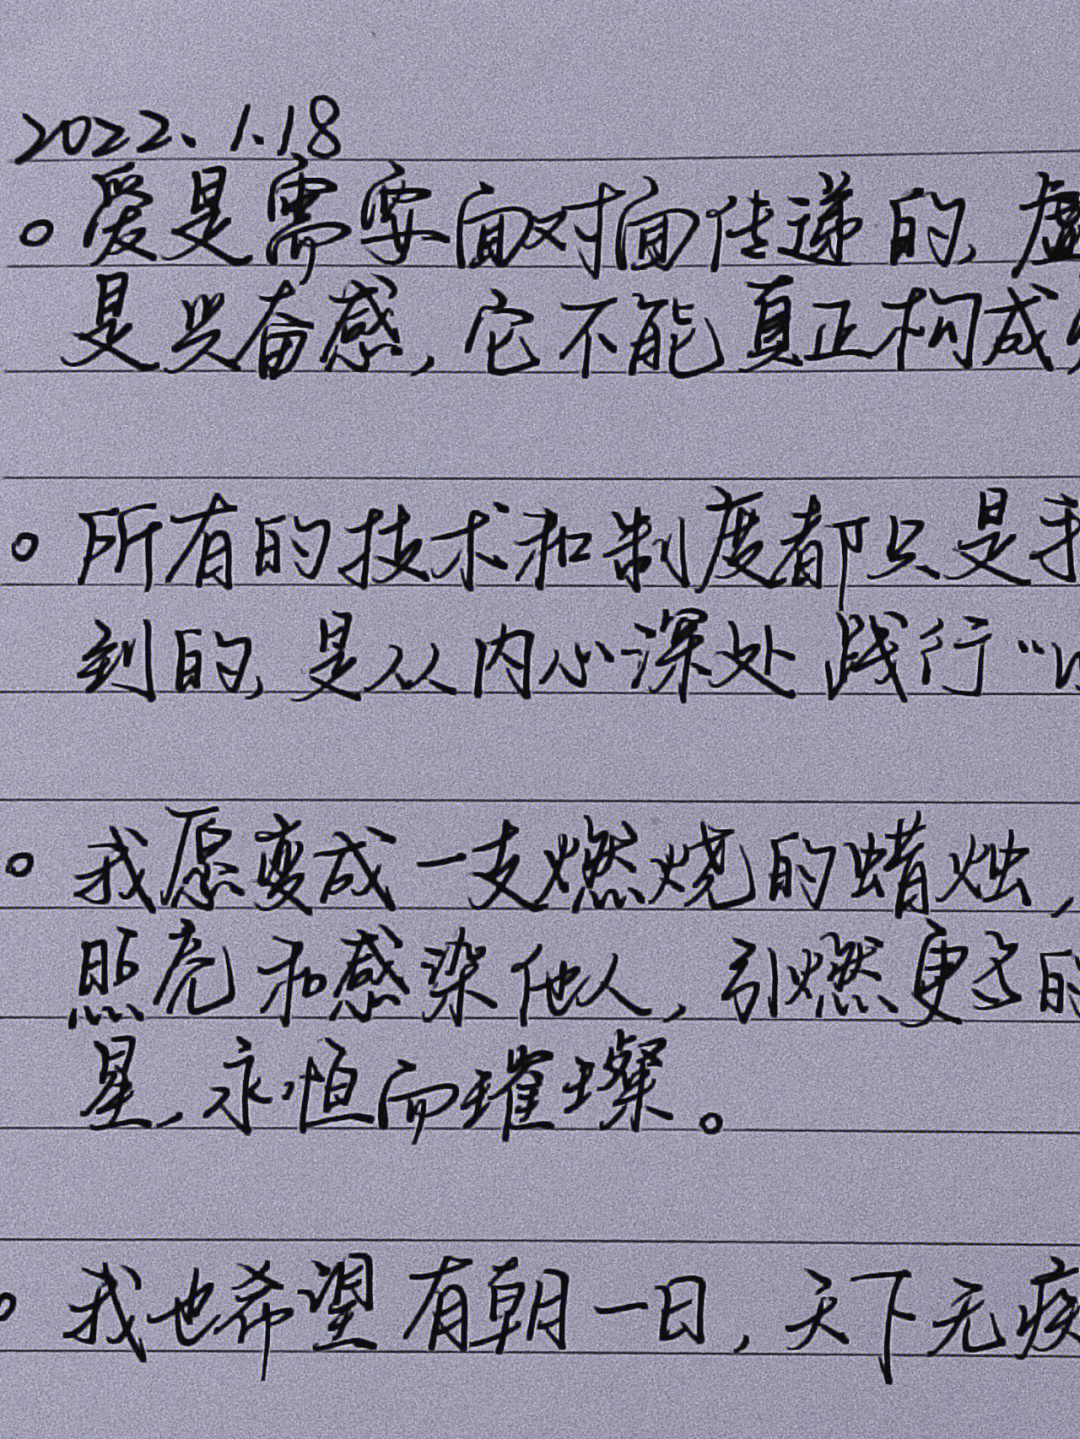 2022、1.18
。爱是需要面对面传递的,虚
是兴奋感,它不能真正构成
。所有的技术和制度都只是我
到的,是从内心深处践行“
。我愿变成一支燃烧的蜡烛,
照亮和感染他人,引燃更多的
星,永恒而璀璨。
。我也希望有朝一日,天下无疾